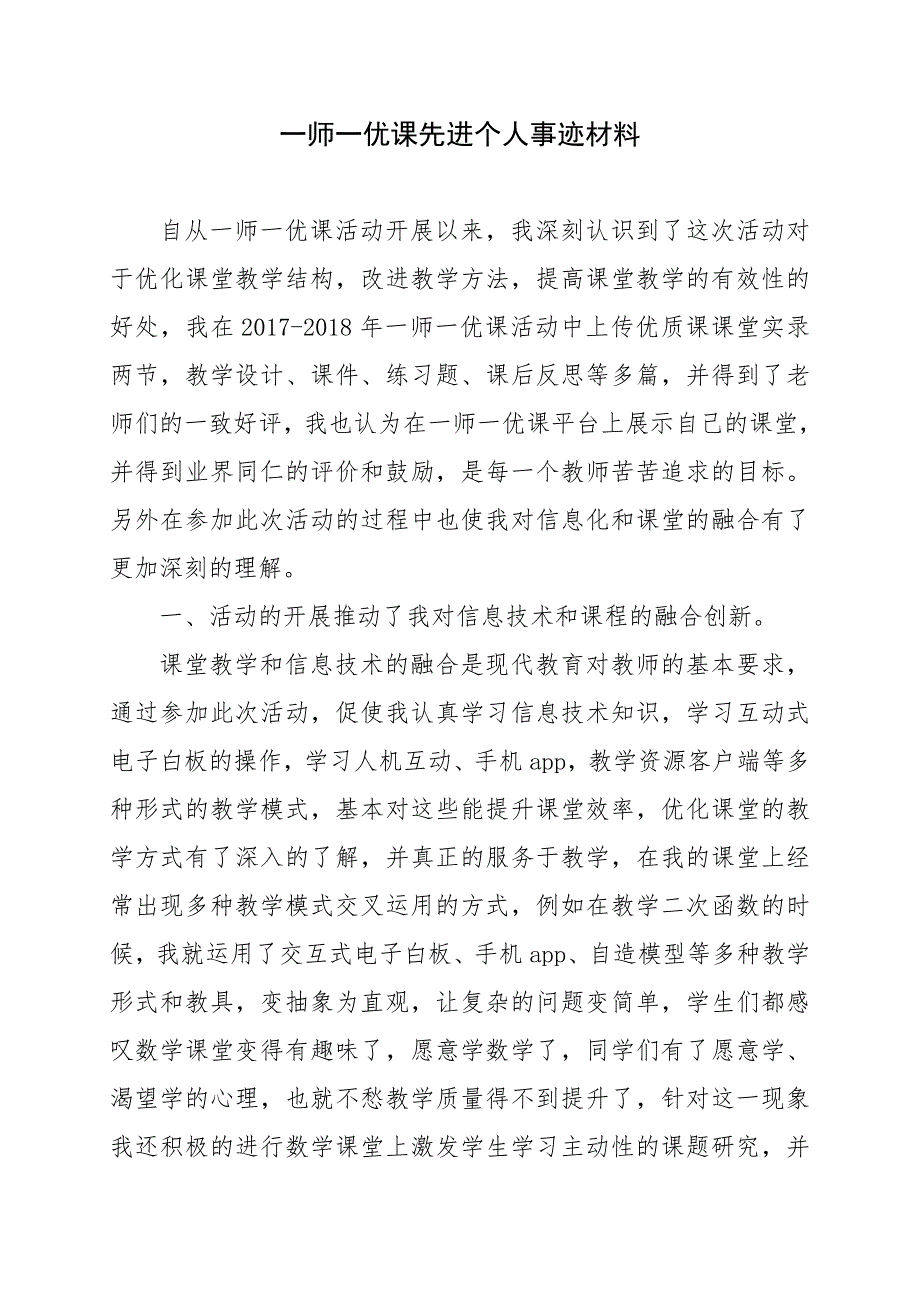 一师一优课先进个人事迹材料
自从一师一优课活动开展以来，我深刻认识到了这次活动对
于优化课堂教学结构，改进教学方法，提高课堂教学的有效性的
好处，我在 2017-2018 年一师一优课活动中上传优质课课堂实录
两节，教学设计、课件、练习题、课后反思等多篇，并得到了老
师们的一致好评，我也认为在一师一优课平台上展示自己的课堂，
并得到业界同仁的评价和鼓励，是每一个教师苦苦追求的目标。
另外在参加此次活动的过程中也使我对信息化和课堂的融合有了
更加深刻的理解。
一、活动的开展推动了我对信息技术和课程的融合创新。
课堂教学和信息技术的融合是现代教育对教师的基本要求，
通过参加此次活动，促使我认真学习信息技术知识，学习互动式
电子白板的操作，学习人机互动、手机 app，教学资源客户端等多
种形式的教学模式，基本对这些能提升课堂效率，优化课堂的教
学方式有了深入的了解，并真正的服务于教学，在我的课堂上经
常出现多种教学模式交叉运用的方式，例如在教学二次函数的时
候，我就运用了交互式电子白板、手机 app、自造模型等多种教学
形式和教具，变抽象为直观，让复杂的问题变简单，学生们都感
叹数学课堂变得有趣味了，愿意学数学了，同学们有了愿意学、
渴望学的心理，也就不愁教学质量得不到提升了，针对这一现象
我还积极的进行数学课堂上激发学生学习主动性的课题研究，并